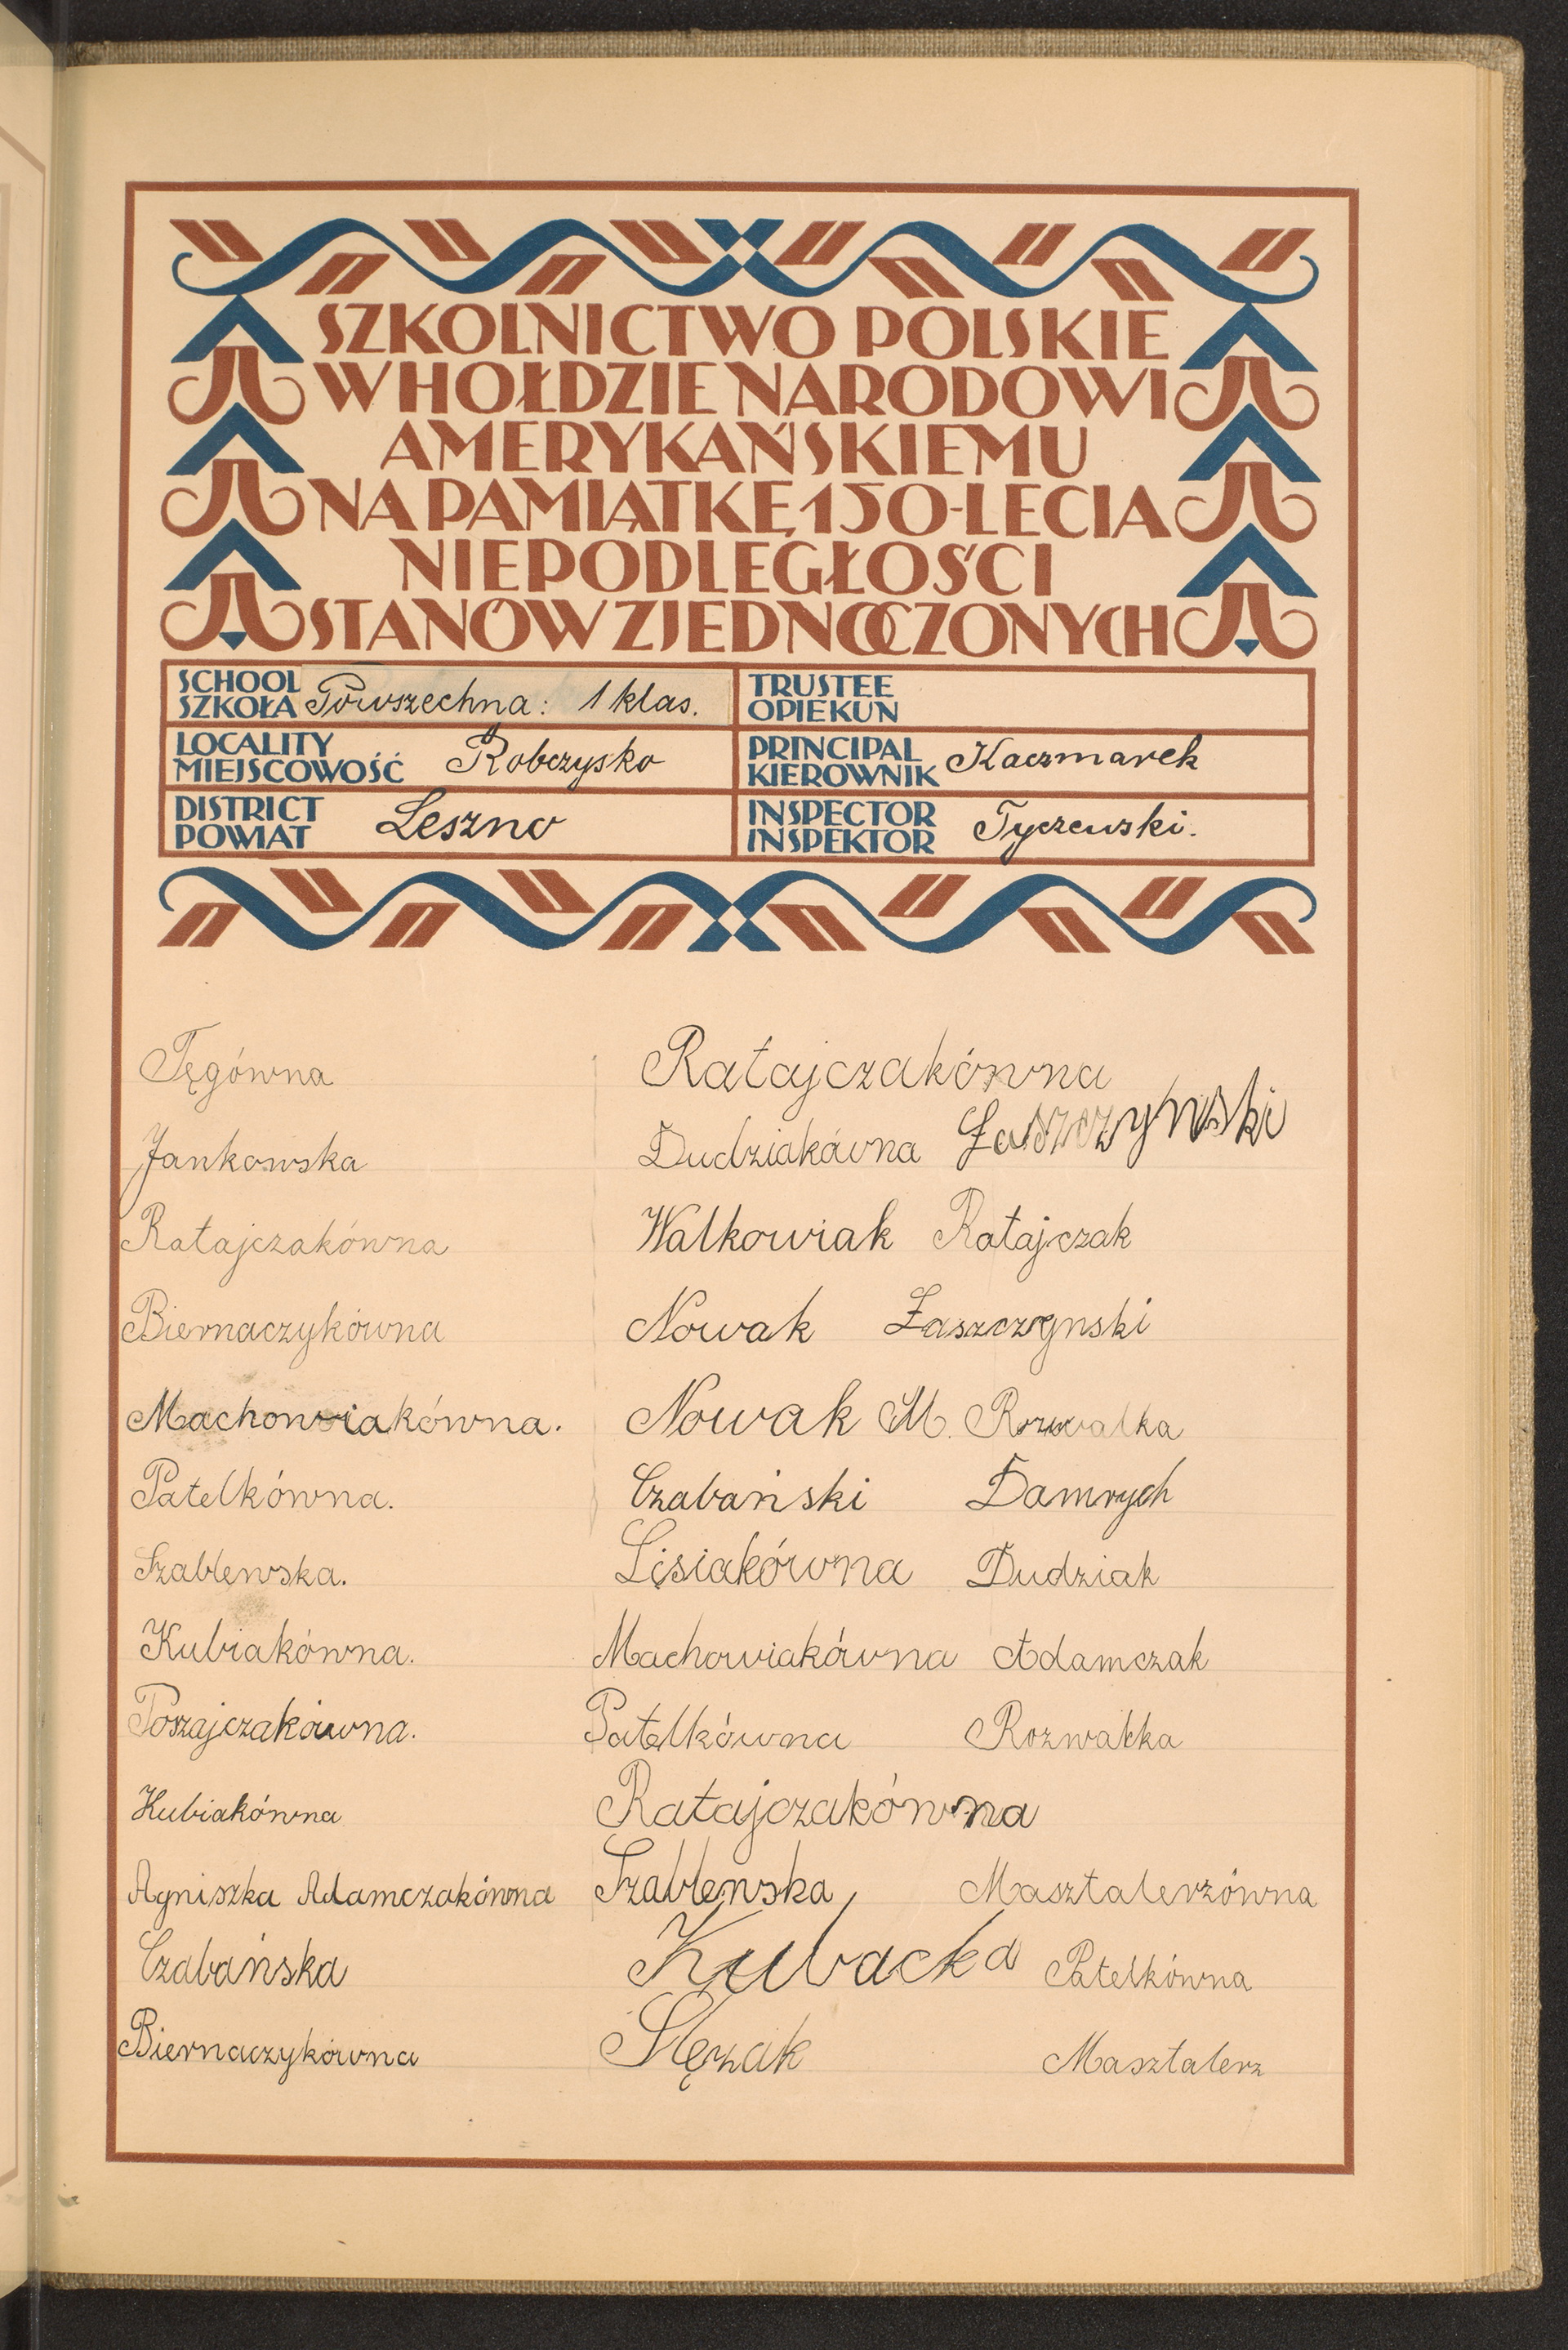 SZKOLNICTWO POLSKIE
W HOŁDZIE NARODOWI
AMERYKAŃSKIEMU
NA PAMIĄTKĘ 150-LECIA
NIEPODLEGŁOŚCI
STANÓW ZJEDNOCZONYCH
SCHOOL SZKOŁA Powszechna: 1 klas.
TRUSTEE OPIEKUN
LOCALITY MIEJSCOWOŚĆ Robczysko
PRINCIPAL KIEROWNIK Kaczmarek
DISTRICT POWIAT Leszno
INSPECTOR INSPEKTOR Tyczewski.
Tęgówna
Jankowska
Ratajczakówna
Biernaczykówna
Machowiakówna.
Patelkówna.
Szablewska.
Kubiakówna.
Kubiakówna
Agniszka Adamczakówna
Czabańska
Biernaczykówna
Ratajczakówna
Dudziakówna Łaszczynski
Walkowiak Ratajczak
Nowak Łaszczynski
Nowak M. Rozwalka
Czabański Damrych
Lisiakówna Dudziak
Machowiakówna Adamczak
Patelkówna Rozwałka
Ratajczakówna
Szablewska Masztalerzówna
Kubacka Patelkówna
Ślęzak Masztalerz